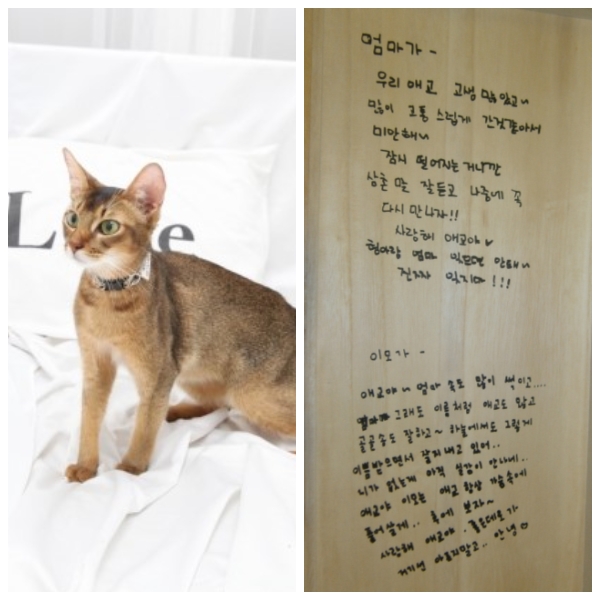 L e
엄마가 -
우리 애교 고생 많았고~
많이 고통 스럽게 간것같아서
미안해~
잠시 떨어지는거니깐
삼촌 말 잘듣고 나중에 꼭
다시 만나자!!
사랑해 애교야♥
형아랑 엄마 잊으면 안돼~
진짜 잊지마!!!
이모가 -
애교야~ 엄마 속도 많이 썩이고....
그래도 이름처럼 애교도 많고
골골송도 잘하고~ 하늘에서도 그렇게
이쁨받으면서 잘지내고 있어..
니가 없는게 아직 실감이 안나네..
애교야 이모는 애교 항상 가슴속에
품어살게.. 훗에 보자~
사랑해 애교야. 좋은데로가
거기선 아프지말고.. 안녕